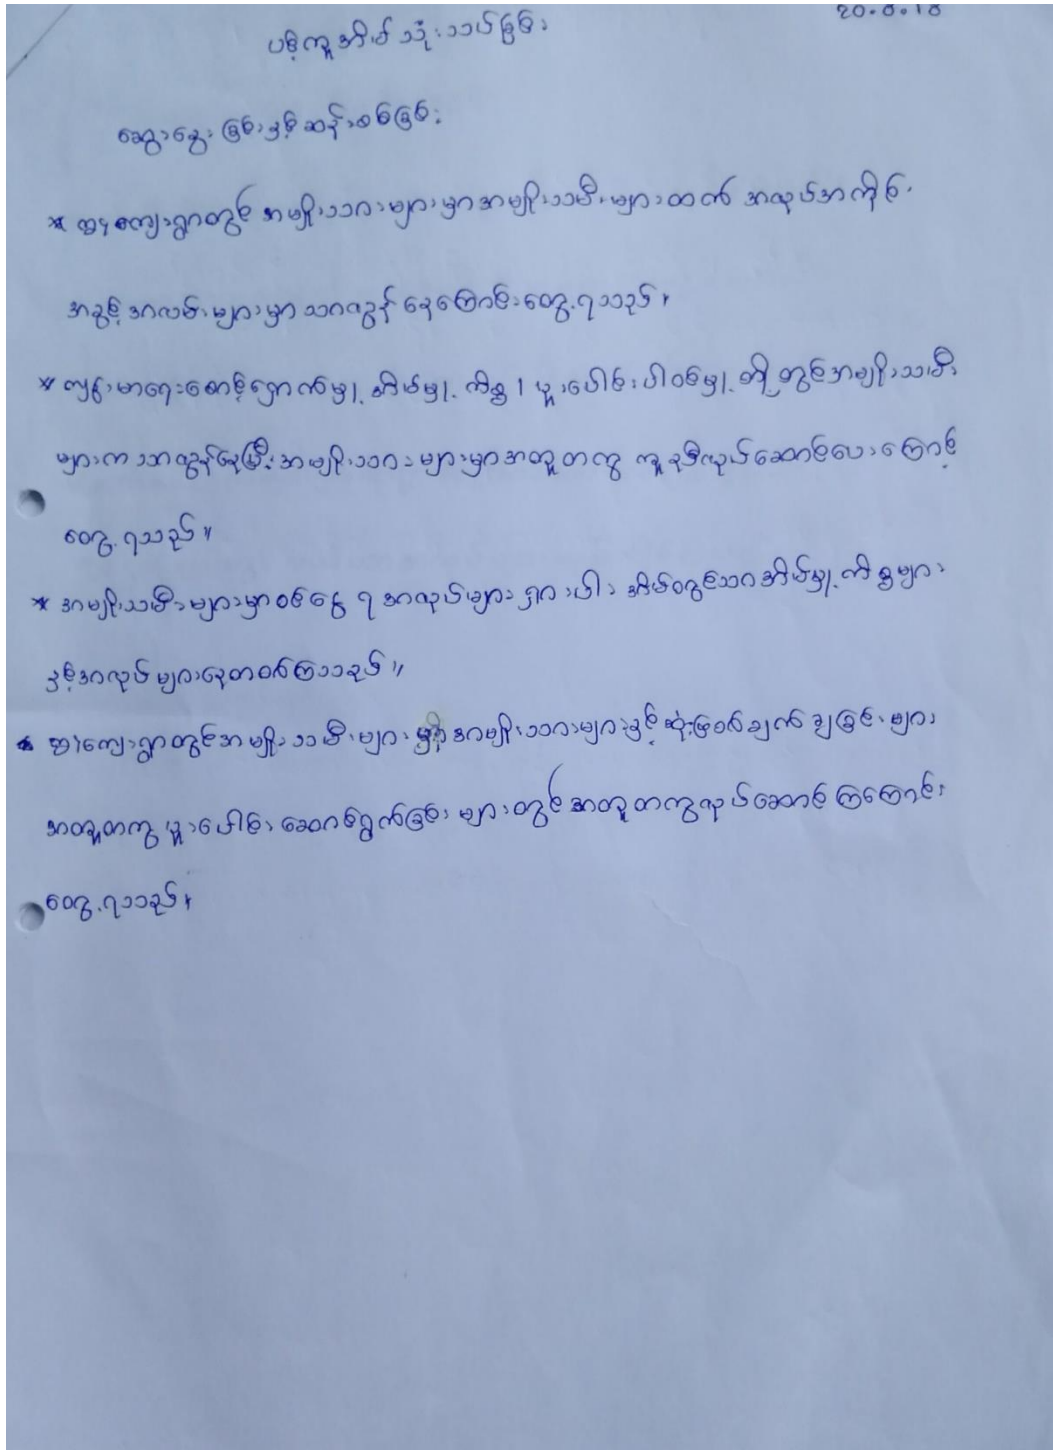 20.8.18
ပင့်ကူအိမ် သုံးသပ်ခြင်း
ဆွေးနွေးခြင်းနှင့် ဆန်းစစ်ခြင်း
* ဤကျေးရွာတွင် အမျိုးသားများမှာ အမျိုးသမီးများထက် အလုပ်အကိုင်
အခွင့်အလမ်းများမှာ သာလွန်နေကြောင်းတွေ့ရသည်။
* ကျန်းမာရေးစောင့်ရှောက်မှု့ အိမ်မှု့ ကိစ္စ ၊ ပူးပေါင်းပါဝင်မှု့ တို့တွင် အမျိုးသမီး
များက သာလွန်နေပြီး အမျိုးသားများမှာ အတူတကွ ကူညီလုပ်ဆောင်ပေးကြောင့်
တွေ့ရသည်။
* အမျိုးသမီးများမှာ ဝင်ငွေ ရ အလုပ်များ ရှားပါး အိမ်တွင်သာ အိမ်မှု့ ကိစ္စများ
နှင့် အလုပ် များနေတတ်ကြသည်။
* ဤကျေးရွာတွင် အမျိုးသမီးများ အမျိုးသားများနှင့် ဆုံးဖြတ်ချက် ချခြင်းများ
အတူတကွ ပူးပေါင်း ဆောင်ရွက်ခြင်း များတွင် အတူတကွလုပ်ဆောင်ကြကြောင်း
တွေ့ရသည်။